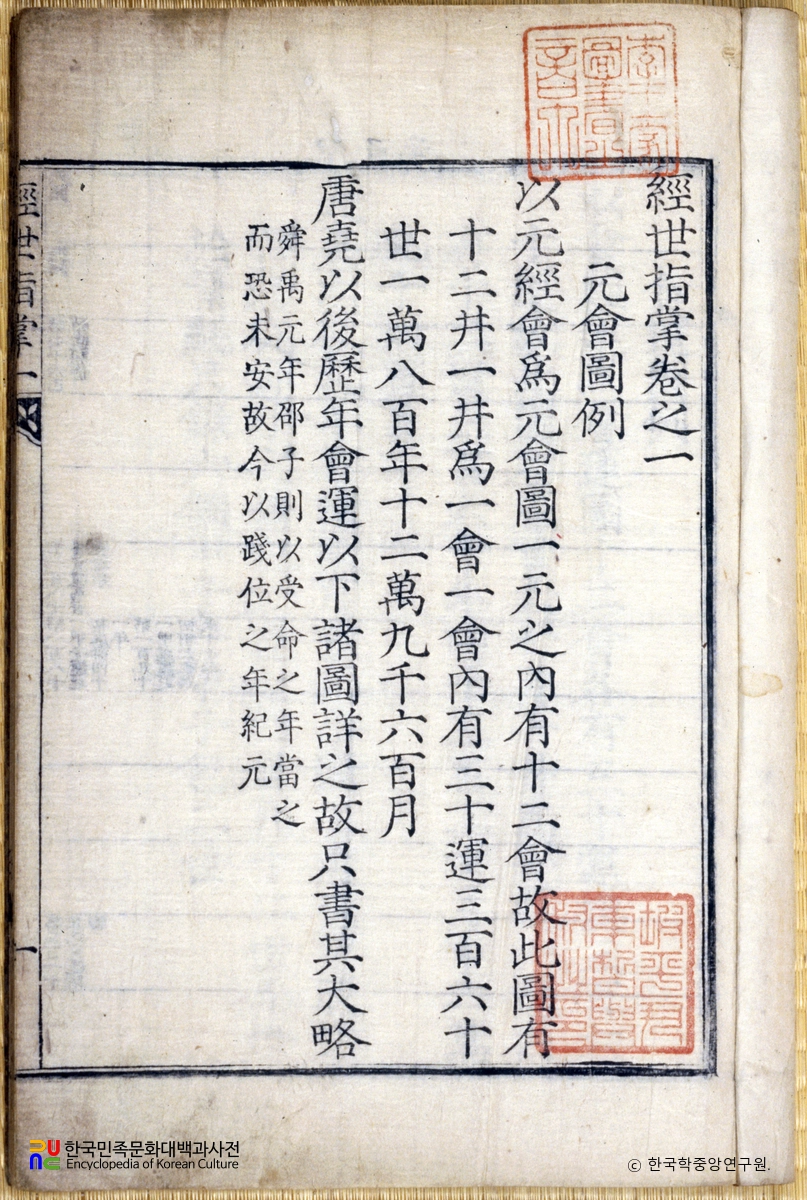 經世指掌卷之一
元會圖例
以元經會爲元會圖一元之內有十二會故此圖有
十二井一井爲一會一會內有三十運三百六十
世一萬八百年十二萬九千六百月
唐堯以後歷年會運以下諸圖詳之故只書其大略
舜禹元年邵子則以受命之年當之
而恐未安故今以踐位之年紀元
經世指掌一
一
한국민족문화대백과사전
Encyclopedia of Korean Culture
ⓒ 한국학중앙연구원.